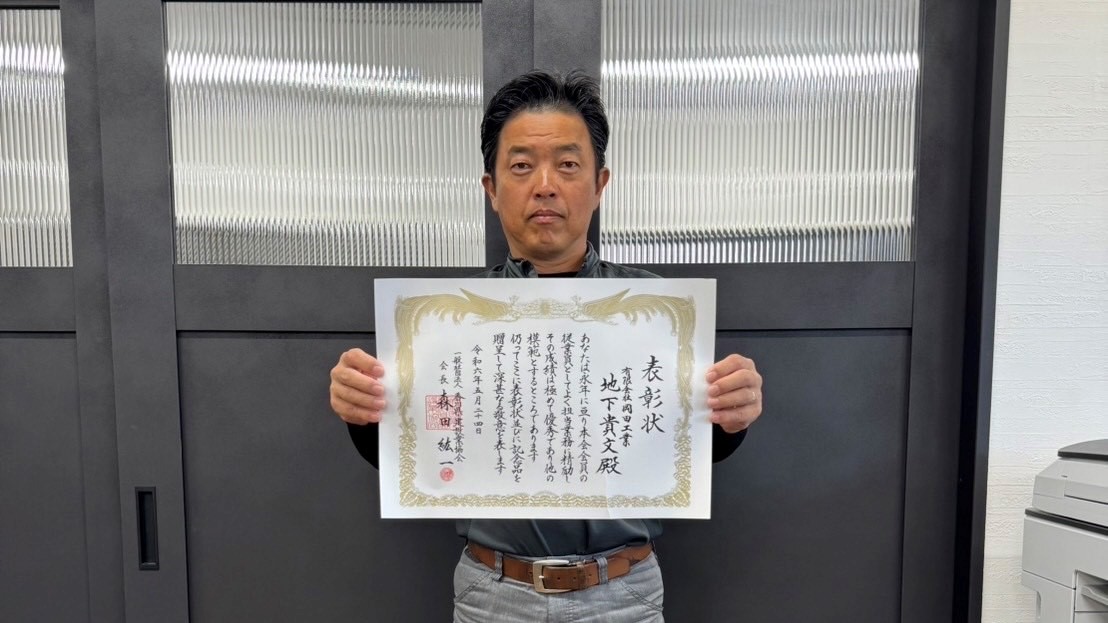 表彰状
有限会社 岡田工業
地下貴文殿
あなたは永年に亘り本会会員の
従業員としてよく担当業務に精励し
その成績は極めて優秀であり他の
模範とするところであります
仍ってここに表彰状並びに記念品を
贈呈して深甚なる敬意を表します
令和六年五月二十四日
一般社団法人 香川県建設業協会
会長 森田紘一